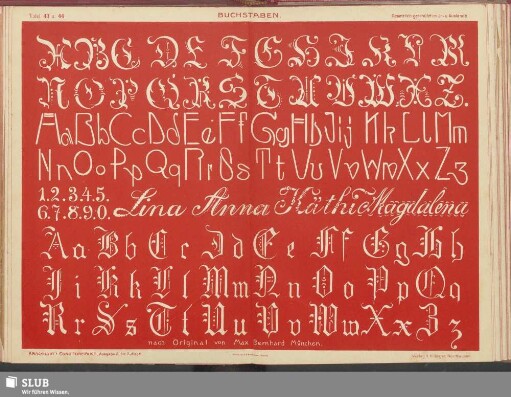 BUCHSTABEN.
A B C D E F G H I K L M
N O P Q R S T U V W X Z.
Aa Bb Cc Dd Ee Ff Gg Hh Jij Kk Ll Mm
Nn Oo Pp Qq Rr Ss Tt Uu Vv Ww Xx Zz
1.2.3.4.5.
6.7.8.9.0. Lina Anna Käthi Magdalena
Aa Bb Cc Dd Ee Ff Gg Hh
Ji Kk Ll Mm Nn Oo Pp Qq
Rr Ss Tt Uu Vv Ww Xx Zz
nach Original von Max Bernhard München.
SLUB
Wir führen Wissen.